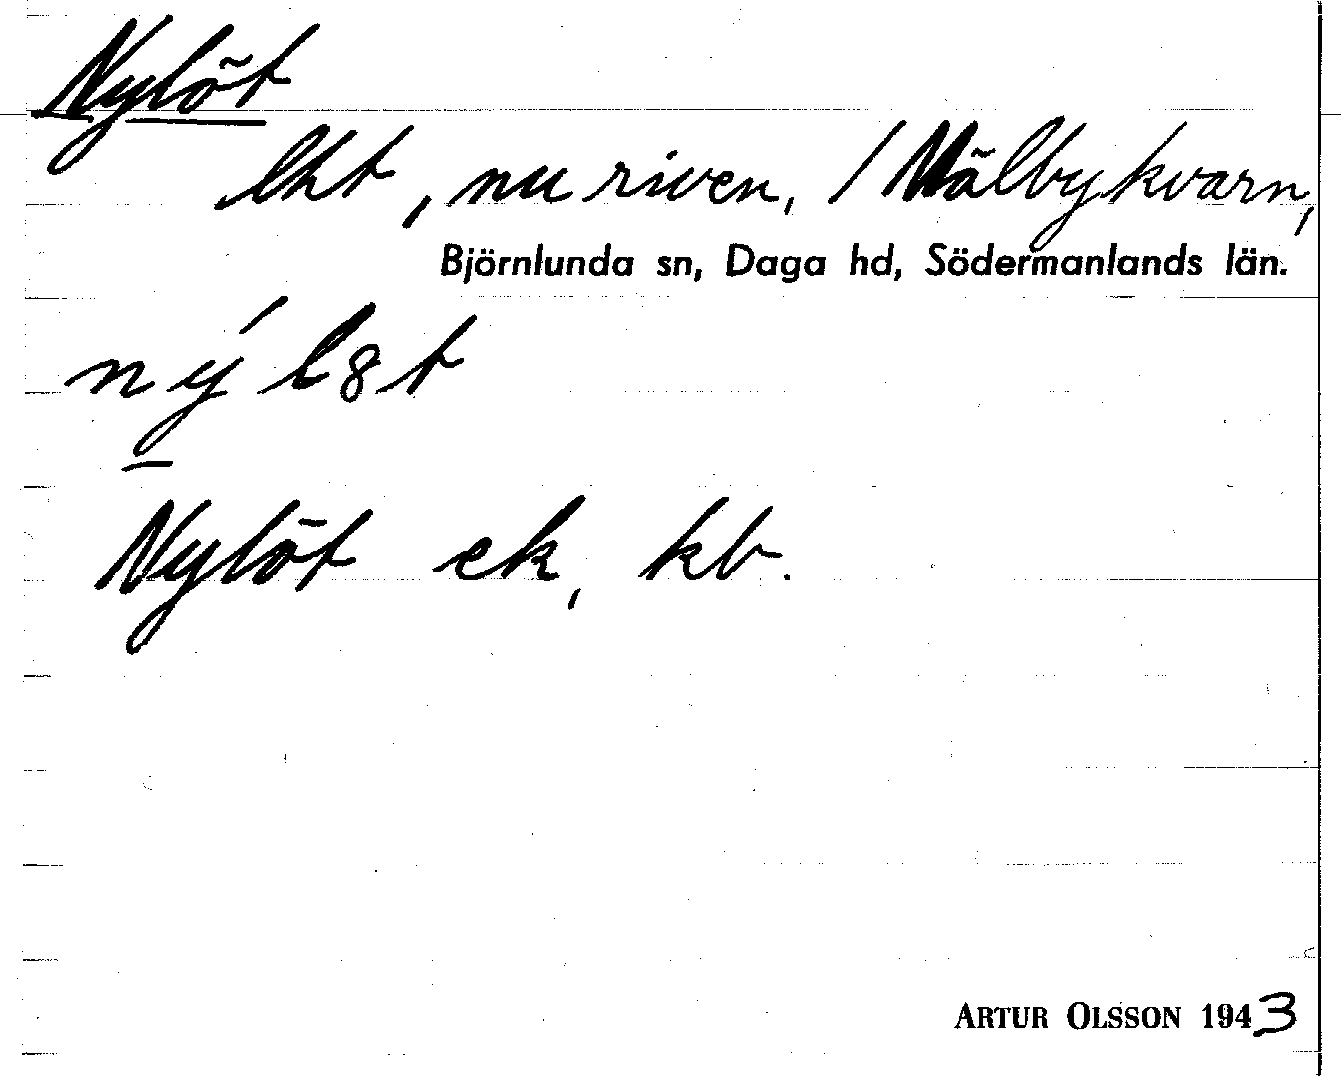 Nylöt
lht, nu riven, / Mälby kvarn,
Björnlunda sn, Daga hd, Södermanlands län.
nýl8t
Nylöt ek, kb.
ARTUR OLSSON 1943